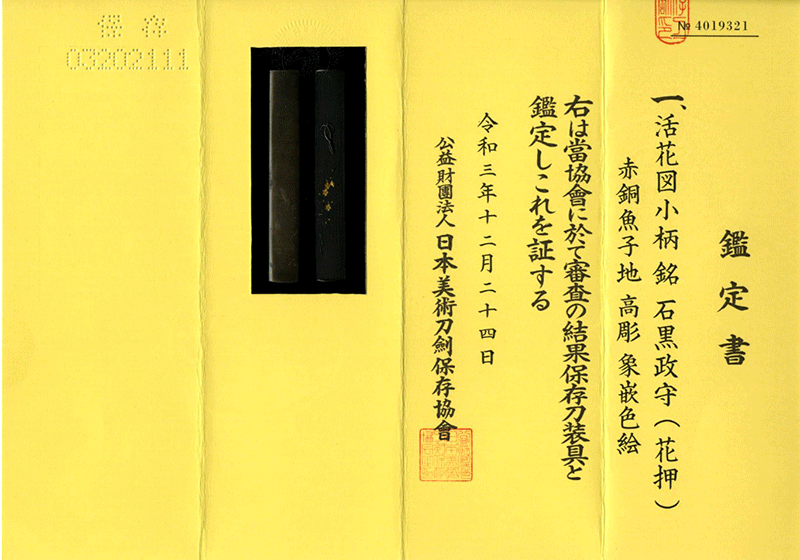 № 4019321
鑑定書
一、活花図小柄 銘 石黒政守(花押)
赤銅魚子地 高彫 象嵌色絵
右は當協會に於て審査の結果保存刀装具と
鑑定しこれを証する
令和三年十二月二十四日
公益財團法人 日本美術刀劍保存協會
保存
03202111